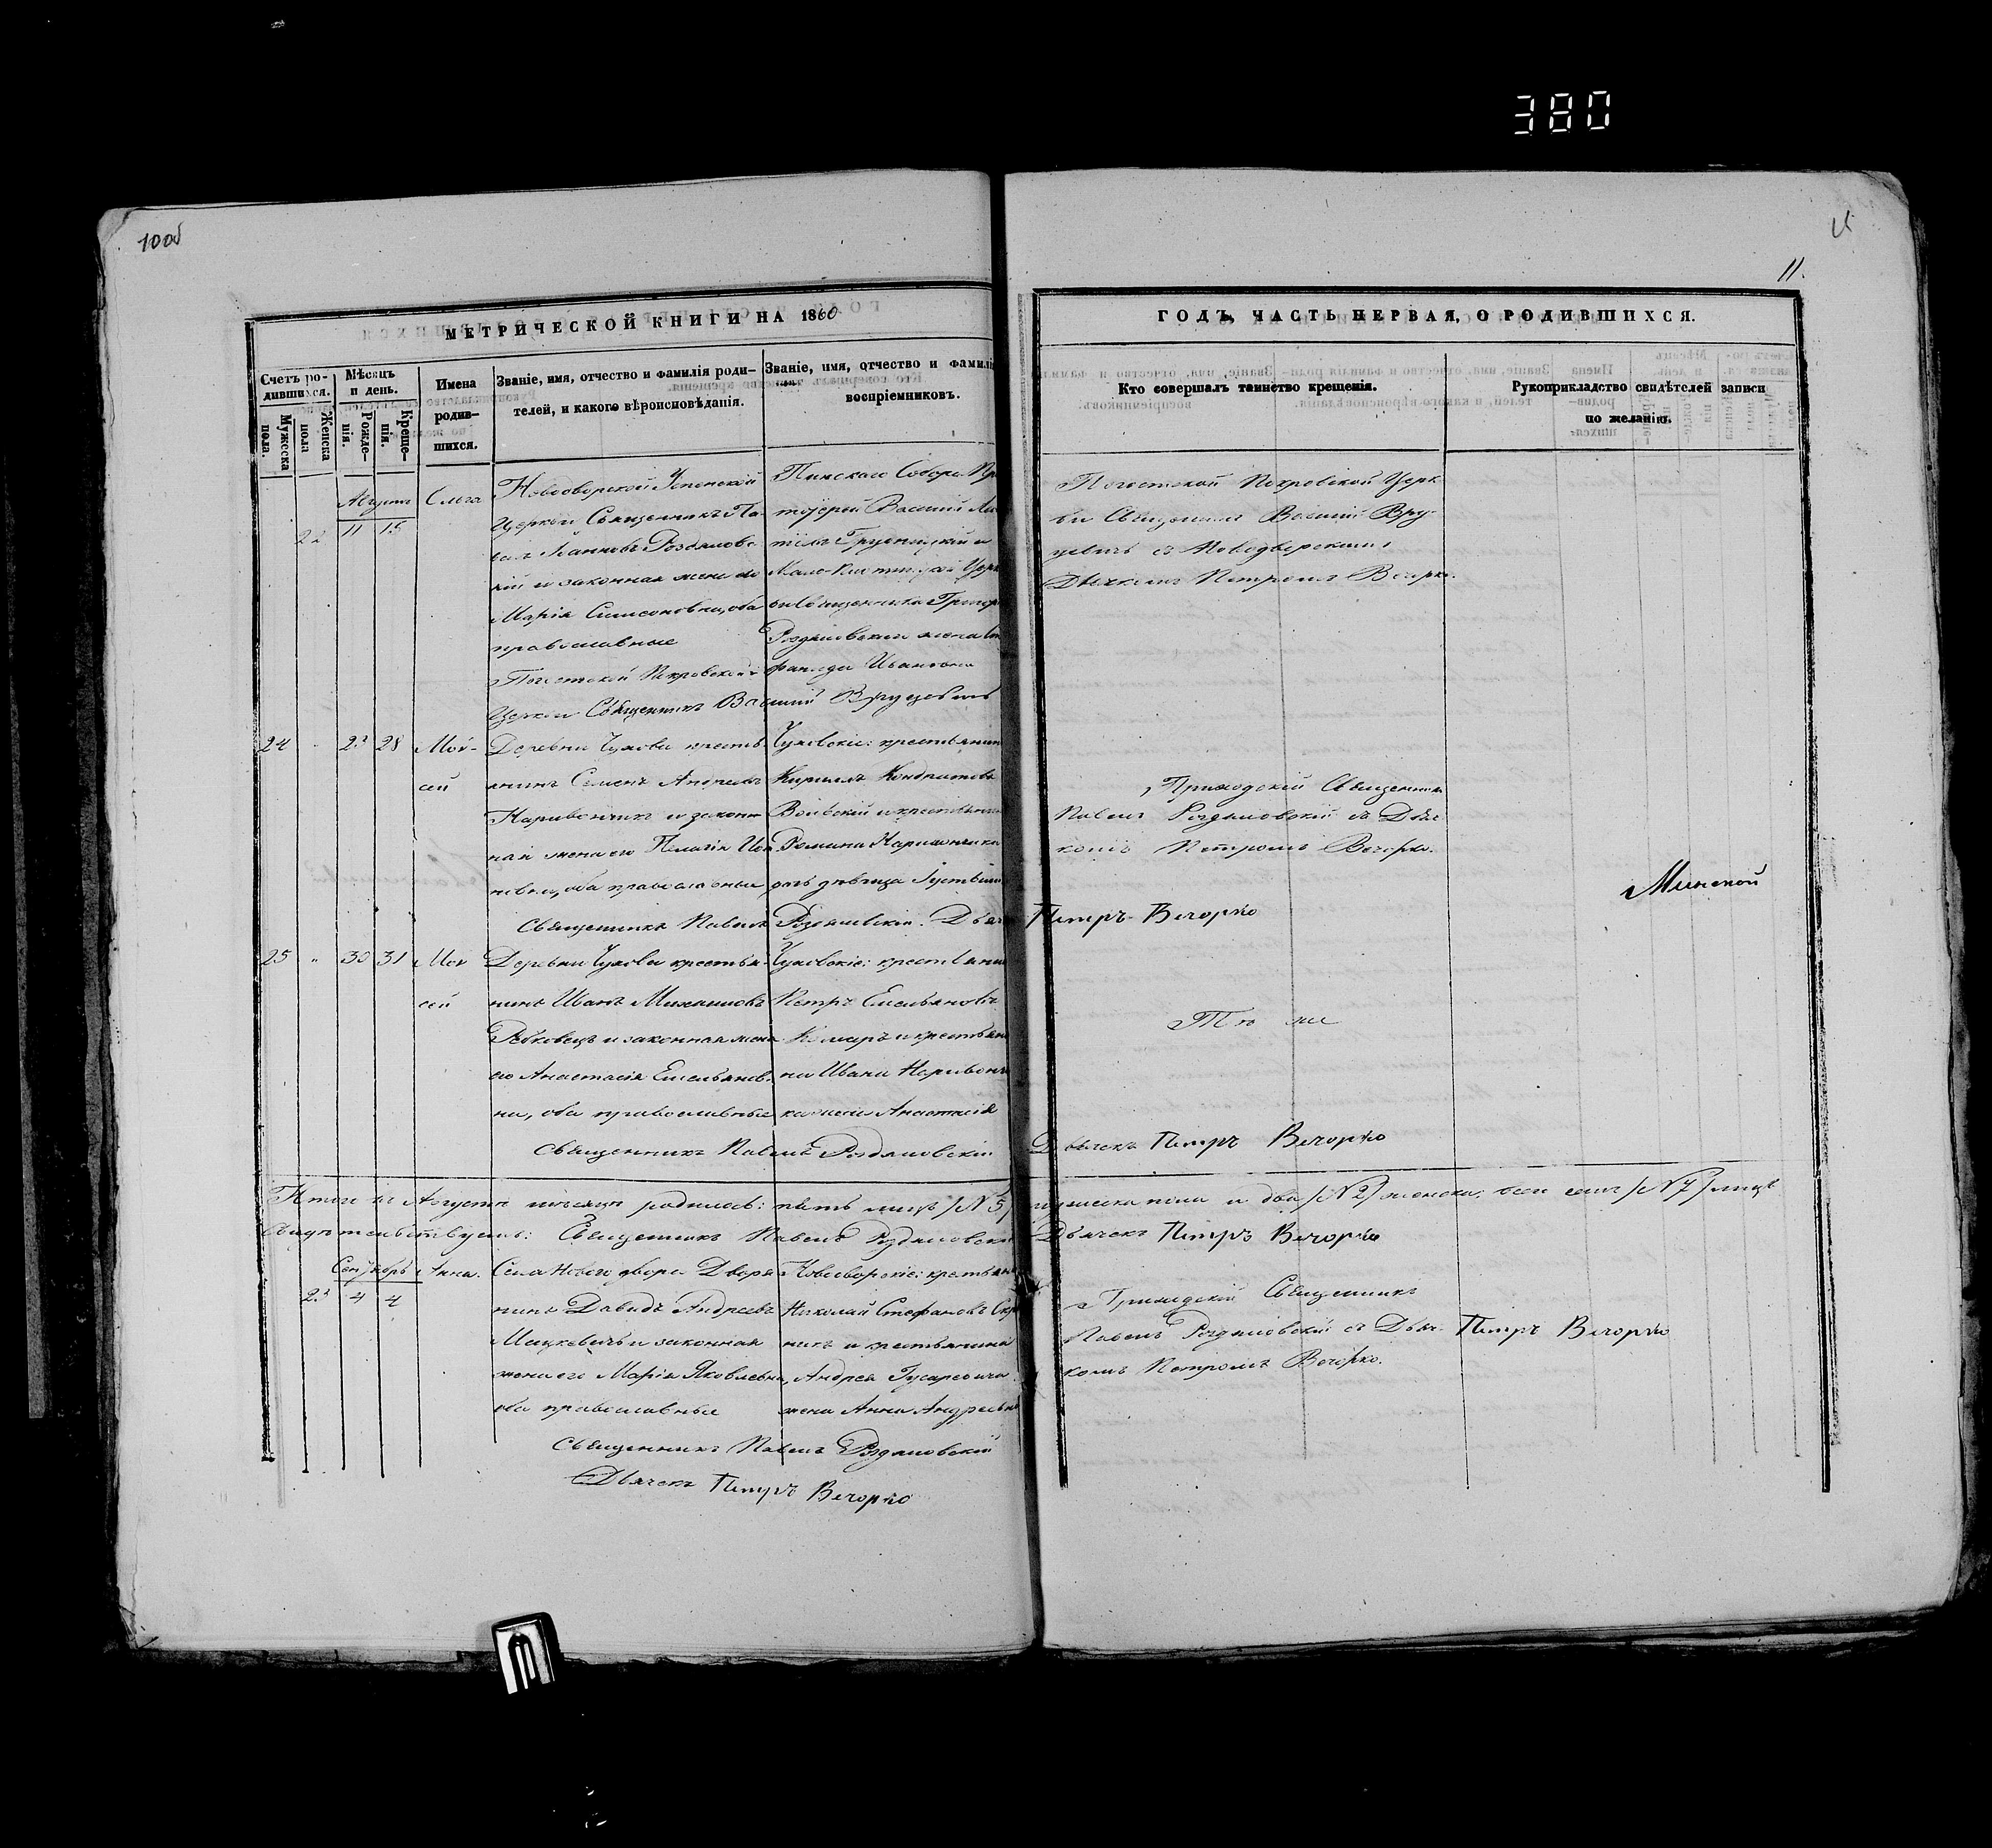 380
100об
11.
МЕТРИЧЕСКОЙ КНИГИ НА 1860
ГОДЪ, ЧАСТЬ ПЕРВАЯ, О РОДИВШИХСЯ.
Счетъ ро-
дившихся.
Мужеска
пола.
Женска
пола
Мѣсяцъ
и день.
Рожде-
нія.
Креще-
нія.
Имена
родив-
шихся.
Званіе, имя, отчество и фамилія роди-
телей, и какого вѣроисповѣданія.
Званіе, имя, отчество и фамилі
воспріемниковъ.
Кто совершалъ таинство крещенія.
Рукоприкладство свидѣтелей записи
по желанію.
Августъ
22 11 15
Ольга
Новодворской Успенской
Церкви Священникъ Па-
велъ Іоанновъ Роздяловс
кій и законная жена его
Марія Симеоновна, оба
православные
Пинскаго Собора Пр
тоіерей Василій
Грудницкій и
Священника Григор
Роздяловскаго жена
Ивановна
Погостской Покровской
Церкви Священникъ Василій Вруцевичъ
Погостской Покровской Церк
ви Священникъ Василій Вру-
цевичъ съ Новодворскимъ
Дьячкомъ Петромъ Вечорко.
24 23 28
Мой-
сей
Деревни Чухова крестья-
нинъ Семенъ Андреевъ
и закон
ная жена его Пелагія
оба православные
Чуховскіе: крестьянин
Кирилъ Кондратовъ
Романа
дочь дѣвица
Приходскій Священникъ
Павелъ Роздяловскій съ Дьяч
комъ Петромъ Вечорко.
Минской
Священникъ Павелъ Роздяловскій. Дьяч Петръ Вечорко
25 " 30 31
Мой
сей
Деревни Чухова крестья-
нинъ Иванъ Михаиловъ
Рабковецъ и законная жена
его Анастасія Емельянов-
на, оба православные
Чуховскіе: крестьянин
Петръ Емельяновъ
Комаръ и крестьяни
на Ивана
жена Анастасія
Тѣ же
Священникъ Павелъ Роздяловскій
Дьячекъ Петръ Вечорко
Итого въ Августѣ мѣсяцѣ родилось: пять лицъ /N 5/ мужеска пола и два /N 2/ женска, всѣхъ семь /N 7/ лицъ
Свидѣтельствуемъ: Священникъ Павелъ Роздяловскій Дьячекъ Петръ Вечорко
Сентябрь
23 4 4
Анна.
Села Новаго двора Дворя
нинъ Давидъ Андреевъ
Мацкевичъ и законная
жена его Марія Яковлевна,
оба православные
Новодворскіе: крестьян
Николай Стефановъ
никъ и крестьянина
Андрея Гусаревича
жена Анна Андреевн
Приходскій Священникъ
Павелъ Роздяловскій съ Дьяч-
комъ Петромъ Вечорко.
Петръ Вечорко
Священникъ Павелъ Роздяловскій
Дьячекъ Петръ Вечорко